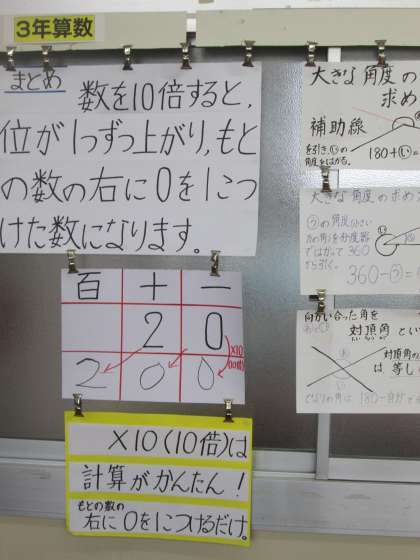 3年算数
まとめ
数を10倍すると,
位が1つずつ上がり,もと
の数の右に0を1につ
けた数になります。
百 十 一
2 0
×10
2 0 0
×10(10倍)は
計算がかんたん!
もとの数の
右に0を1につけるだけ。
大きな角度の
求め
補助線
を引き、㋑の
角度をはかる。
180+㋑=
大きな角度の求め方
ではかって360
から引く。
360-㋒=
向かい合った角を
対頂角とい
対頂角の
は等し